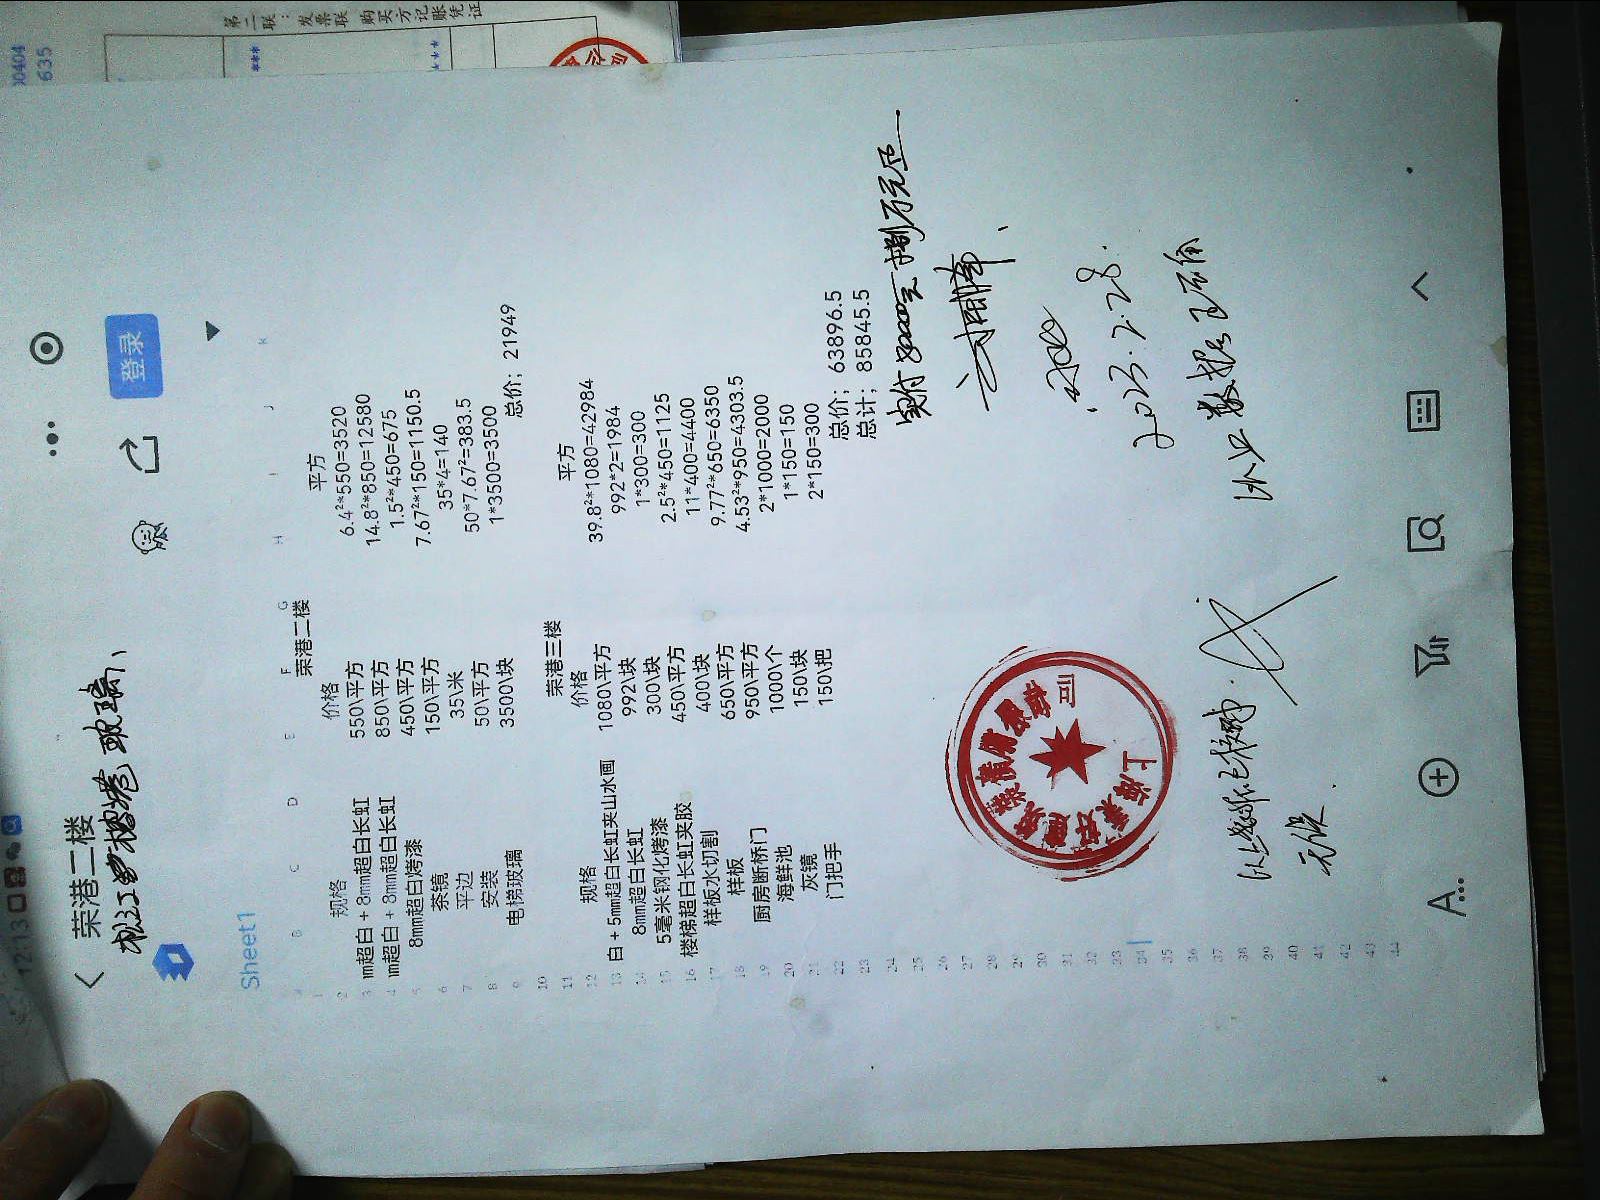 第二联：发票联 购买方记账凭证
00404
635
12:13
荣港二楼
松江荣港玻璃、
登录
Sheet1
A B C D E F G H I J K
荣港二楼
规格 价格 平方
㎜超白+8㎜超白长虹 550\平方 6.4²*550=3520
㎜超白+8㎜超白长虹 850\平方 14.8²*850=12580
8㎜超白烤漆 450\平方 1.5²*450=675
茶镜 150\平方 7.67²*150=1150.5
平边 35\米 35*4=140
安装 50\平方 50*7.67²=383.5
电梯玻璃 3500\块 1*3500=3500
总价；21949
荣港三楼
规格 价格 平方
白+5㎜超白长虹夹山水画 1080\平方 39.8²*1080=42984
8㎜超白长虹 992\块 992*2=1984
5毫米钢化烤漆 300\块 1*300=300
楼梯超白长虹夹胶 450\平方 2.5²*450=1125
样板水切割 400\块 11*400=4400
样板 650\平方 9.77²*650=6350
厨房断桥门 950\平方 4.53²*950=4303.5
海鲜池 1000\个 2*1000=2000
灰镜 150\块 1*150=150
门把手 150\把 2*150=300
总价；63896.5
总计；85845.5
实付80000元 捌万元正
2023.2.28.
以上数据已核对.
无误.
以上数据正确